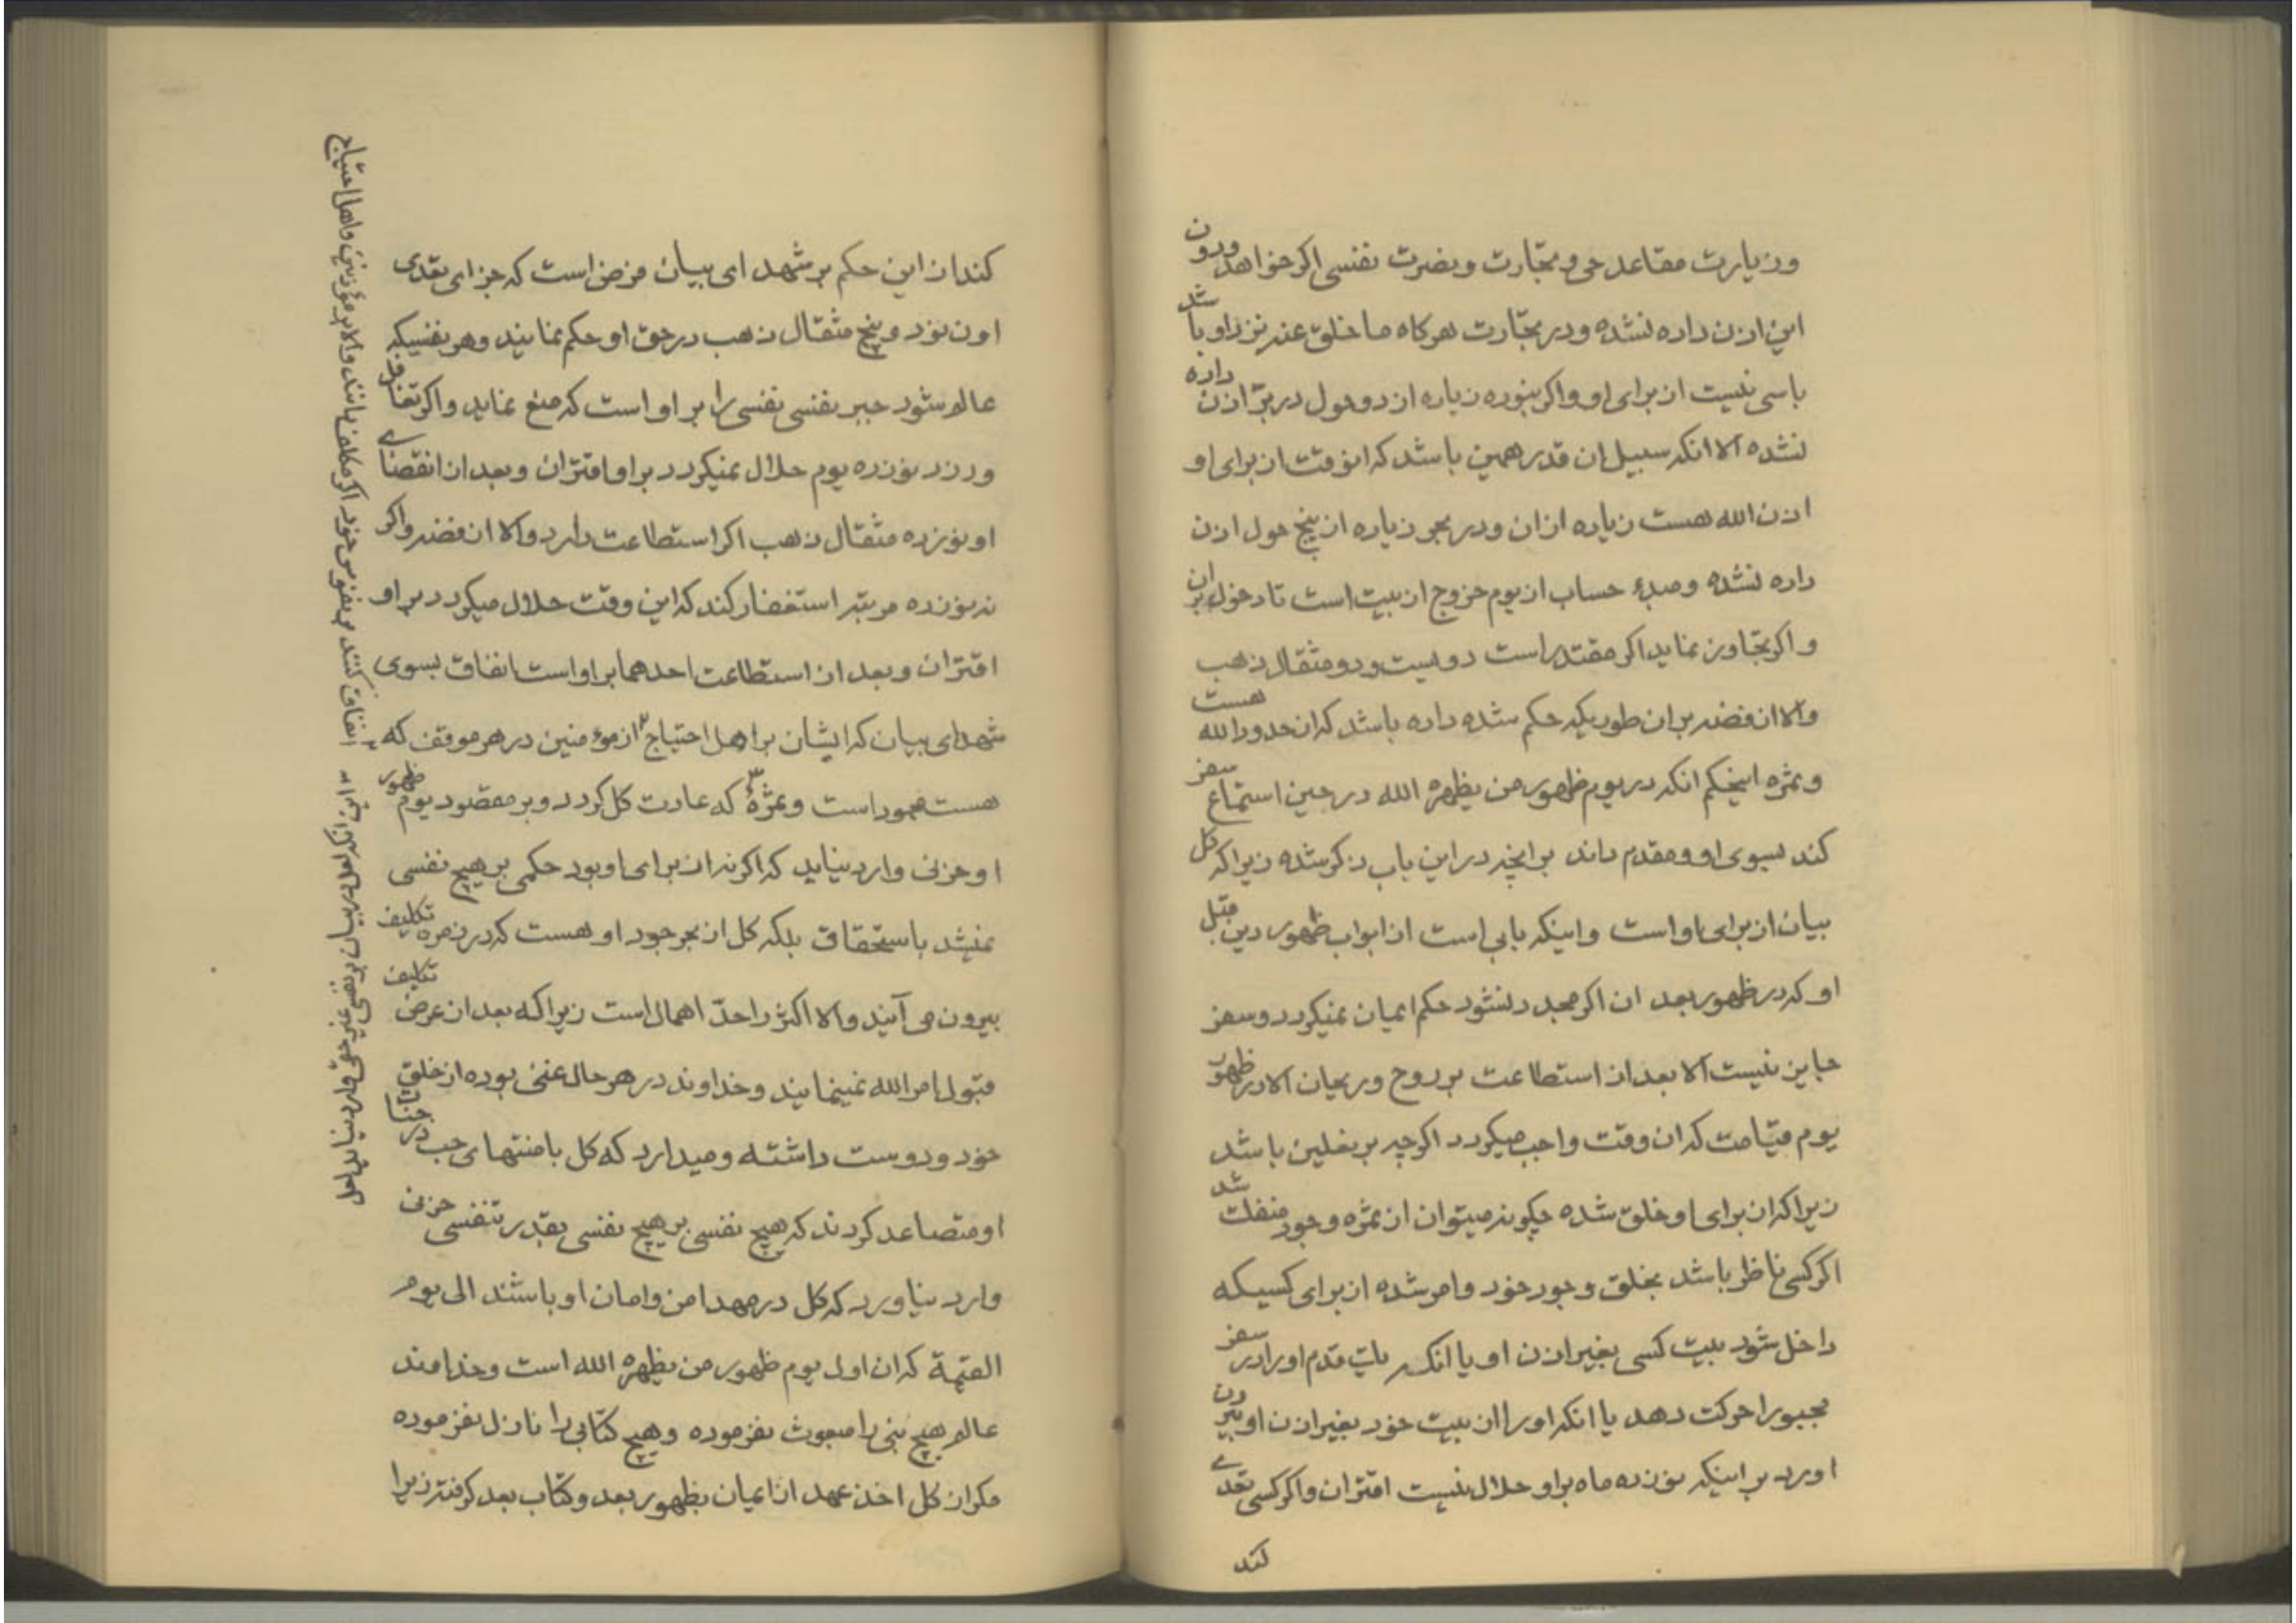 وزیارت مقاعد حی و تجارت و نصرت نفسی اکر خواهد ودون
این اذن داده نشده و در تجارت هرکاه ما خلق عند نزد او باشد
باسی نیست از برای او و اکر نبوده زیاده از دو حول در بر اذن داده
نشده الا انکه سبیل ان قدر همین باشد که انوقت از برای او
اذن الله هست زیاده از ان و در بحر زیاده از پنج حول اذن
داده نشده و مبدء حساب از یوم خروج از بیت است تا دخول بران
و اکر تجاوز نماید اکر مقتدر است دویست و دو مثقال ذهب
والا از فضه بران طوریکه حکم شده داده باشد که ان حدود الله هست
و ثمره اینحکم انکه در یوم ظهور من یظهره الله در حین استماع سفر
کند بسوی او و مقدم داند برانچه در این باب ذکر شده زیرا که کل
بیان از برای او است و اینکه بابی است از ابواب ظهور دین قبل
او که در ظهور بعد ان اکر مجدد نشود حکم ایمان نمیکردد و سفر
جایز نیست الا بعد از استطاعت بر روح و ریحان الا در ظهور
یوم قیامت که ان وقت واجب میکردد اکرچه بر نعلین باشد
زیرا که از برای او خلق شده چکونه میتوان از ثمره وجود منفک شد
اکر کسی ناظر باشد بخلق وجود خود و امر شده از برای کسیکه
داخل شود بیت کسی بغیر اذن او یا انکه یک قدم او را در سفر
مجبورا حرکت دهد یا انکه او را از بیت خود بغیر اذن او بیرون
اورد بر اینکه نوزده ماه براو حلال نیست اقتران و اکر کسی تعدی
کند
کند از این حکم بر شهدای بیان فرض است که جزای تعدی
او نود و پنج مثقال ذهب در حق او حکم نمایند و هر نفسیکه
عالم شود جبر نفسی نفسی را بر او است که منع نماید و اکر تغافل
ورزد نوزده یوم حلال نمیکردد بر او اقتران و بعد از انقضای
او نوزده مثقال ذهب اکر استطاعت دارد والا از فضه و اکر
نه نوزده مرتبه استغفار کند که این وقت حلال میکردد بر او
اقتران و بعد از استطاعت احدهما بر او است انفاق بسوی
شهدای بیان که ایشان بر اهل احتیاج از مؤمنین در هر موقف که
هست همود است و ثمرهٔ که عادت کل کردد و بر مقصود یوم ظهور
او حزنی وارد نیاید که اکر نه از برای او بود حکمی بر هیچ نفسی
نمیشد باستحقاق بلکه کل از بحر جود او هست که در زمره تکلیف
بیرون می آیند والا اکثر را حد اهمال است زیراکه بعد از عرض تکلیف
قبول امر الله نمینمایند و خداوند در هر حال غنی بوده از خلق
خود و دوست داشته و میدارد که کل با منتهای حب در جنات
او متصاعد کردند که هیچ نفسی بر هیچ نفسی بقدر تنفسی حزن
وارد نیاورد که کل در مهد امن و امان او باشند الی یوم
القیمة که ان اول یوم ظهور من یظهره الله است و خداوند
عالم هیچ نبی را مبعوث نفرموده و هیچ کتابی را نازل نفرموده
مکر از کل اخذ عهد از ایمان بظهور بعد و کتاب بعد کرفته زیرا
انفاق کنند به نفوس خود اکر مکلف باشند والا بر مؤمنین و اهل احتیاج